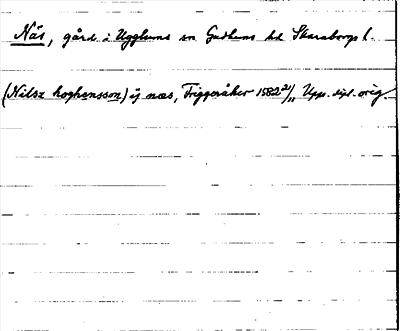 Näs, gård i Ugglums sn Gudhems hd Skaraborgs l.
(Nilsz hoghensson) ij næs, Friggeråker 1582 21/11 Upps. dipl. orig.